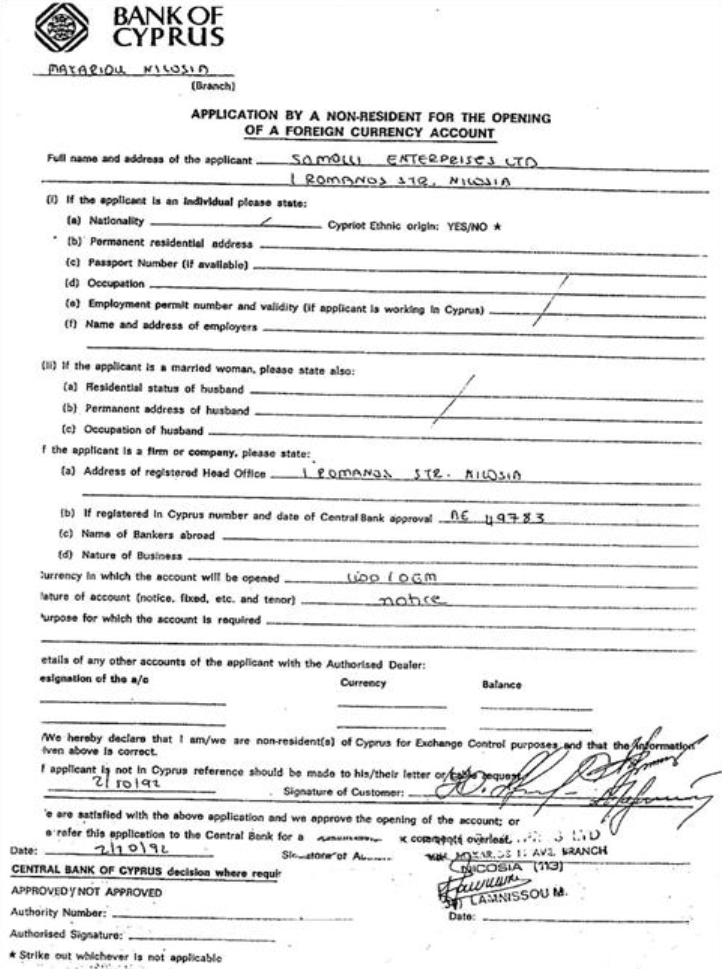 BANK OF
CYPRUS
MAKARIOU NICOSIA
(Branch)
APPLICATION BY A NON-RESIDENT FOR THE OPENING
OF A FOREIGN CURRENCY ACCOUNT
Full name and address of the applicant SAMOLLI ENTERPRISES LTD
1 ROMANOS STR. NICOSIA
(i) If the applicant is an individual please state:
(a) Nationality / Cypriot Ethnic origin: YES/NO *
(b) Permanent residential address
(c) Passport Number (if available)
(d) Occupation
(e) Employment permit number and validity (if applicant is working in Cyprus)
(f) Name and address of employers
(ii) If the applicant is a married woman, please state also:
(a) Residential status of husband
(b) Permanent address of husband
(c) Occupation of husband
f the applicant is a firm or company, please state:
(a) Address of registered Head Office 1 ROMANOS STR. NICOSIA
(b) If registered in Cyprus number and date of Central Bank approval AE 49783
(c) Name of Bankers abroad
(d) Nature of Business
urrency in which the account will be opened
ature of account (notice, fixed, etc. and tenor) notice
urpose for which the account is required
etails of any other accounts of the applicant with the Authorised Dealer:
esignation of the a/c Currency Balance
/We hereby declare that I am/we are non-resident(s) of Cyprus for Exchange Control purposes and that the information
iven above is correct.
f applicant is not in Cyprus reference should be made to his/their letter or/ request.
2/10/92
Signature of Customer:
e are satisfied with the above application and we approve the opening of the account; or
refer this application to the Central Bank for a comments overleaf. LTD
Date: 2/10/92 AVE. BRANCH
NICOSIA (113)
CENTRAL BANK OF CYPRUS decision where requir
LAMNISSOU M.
APPROVED/NOT APPROVED
Authority Number: Date:
Authorised Signature:
* Strike out whichever is not applicable